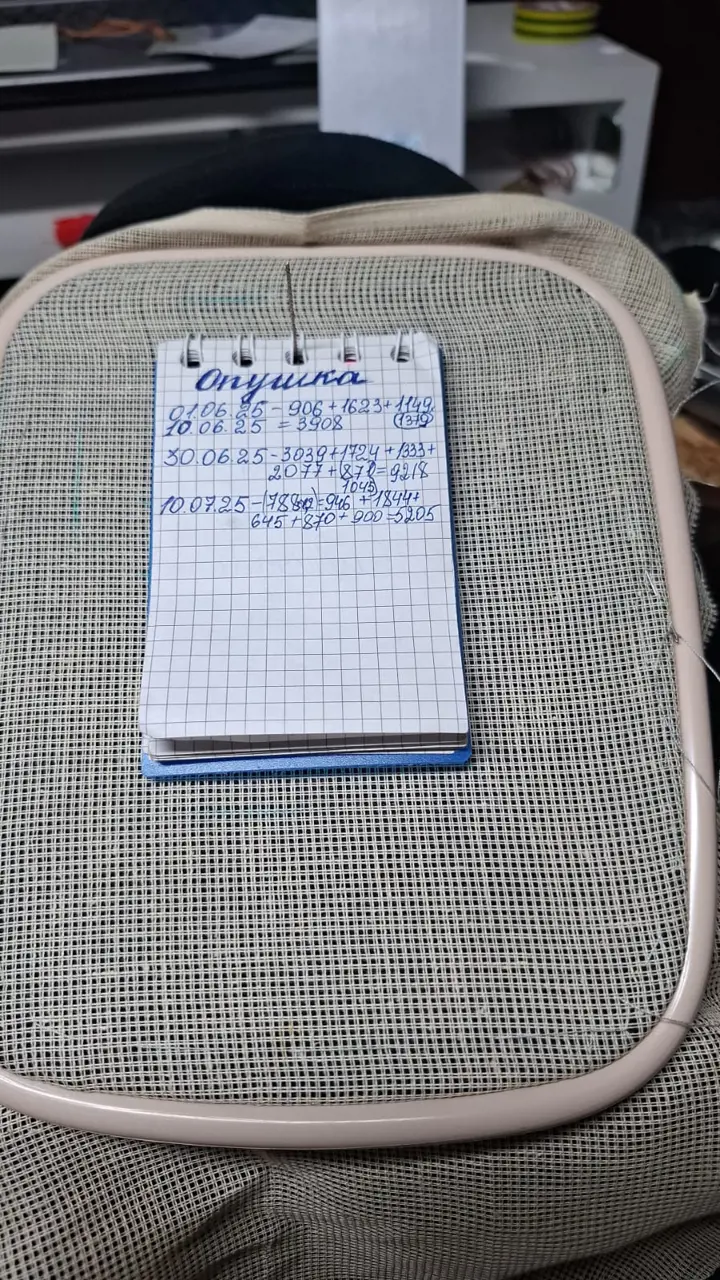 Опушка
01.06.25 - 906 + 1623 + 1149
10.06.25 = 3908 (1379)
30.06.25 - 3039 + 1724 + 1333 +
2077 + (871) = 9218
1045
10.07.25 - = 946 + 1844 +
645 + 870 + 900 = 5205